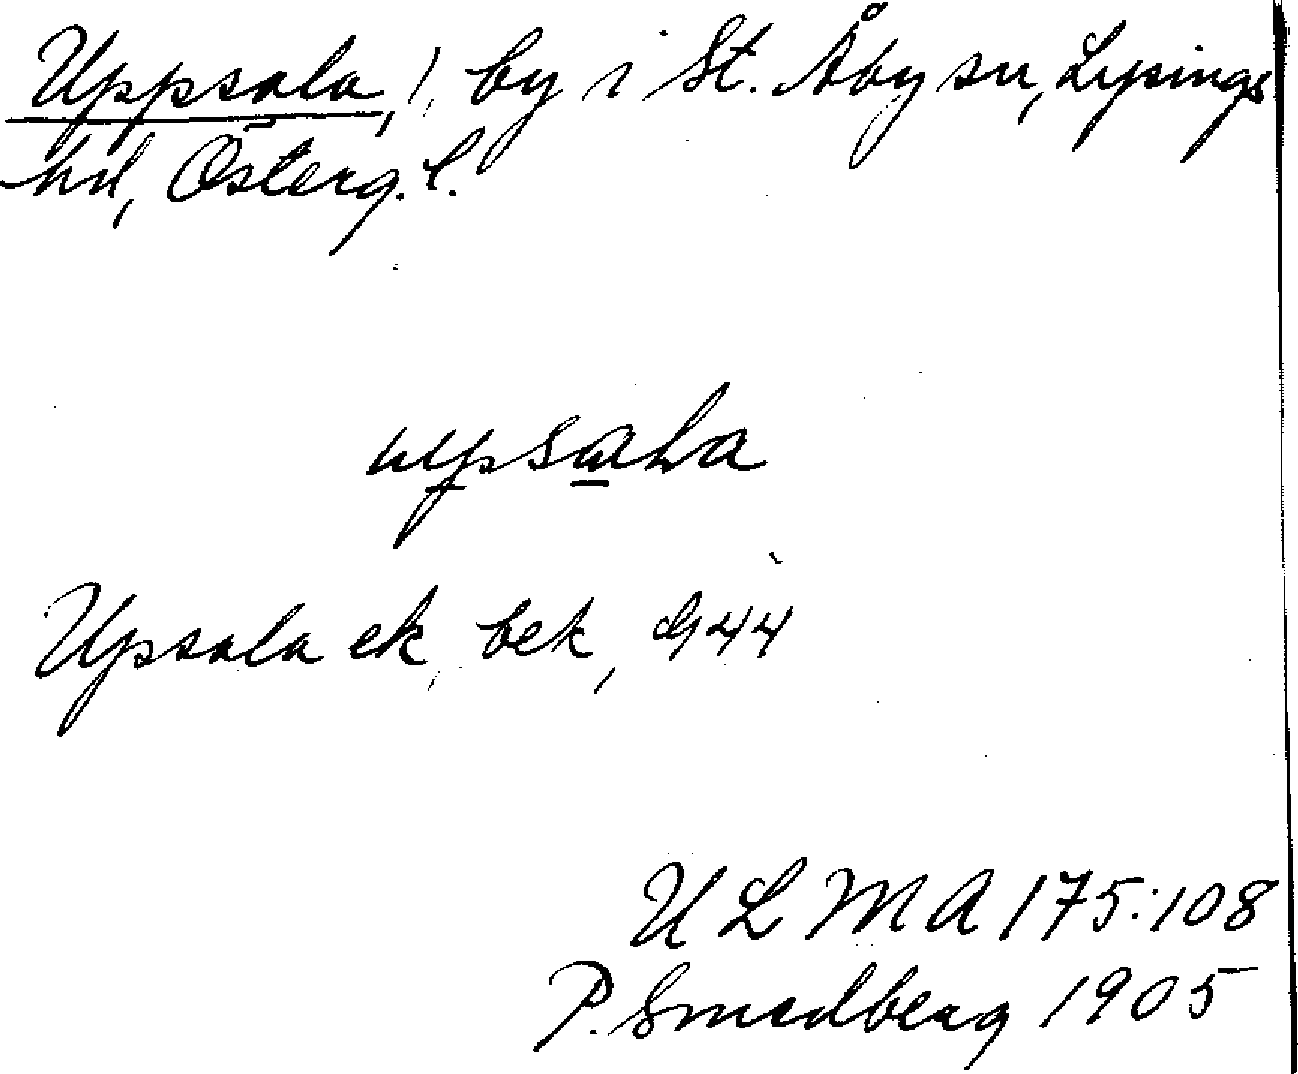 Uppsala, 1, by i St. Åby sn, Lysings
hd, Österg. l.
Upsala ek. bek, G44
ULMA 175:108
P. Smedberg 1905